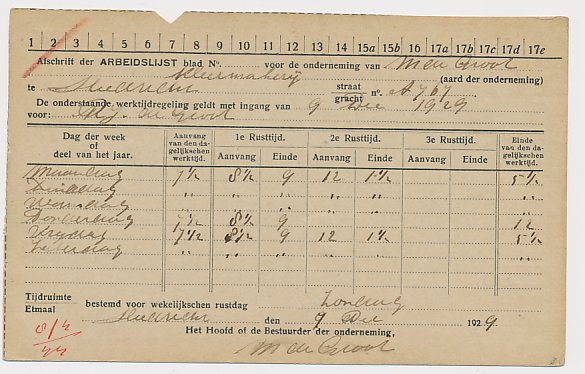 1 2 3 4 5 6 7 8 9 10 11 12 13 14 15a 15b 16 17a 17b 17c 17d 17e
Afschrift der ARBEIDSLIJST blad No. voor de onderneming van M de Groot
kleermakerij (aard der onderneming)
te Sliedrecht straat gracht no. A 767
De onderstaande werktijdregeling geldt met ingang van 9 Dec 1929
voor: de Groot
Dag der week of deel van het jaar. Aanvang van den dagelijkschen werktijd. 1e Rusttijd. 2e Rusttijd. 3e Rusttijd. Einde van den dagelijkschen werktijd.
Aanvang Einde Aanvang Einde Aanvang Einde
Maandag 7 1/2 8 1/2 9 12 1 1/2 5 1/2
Dinsdag " " " " " "
Woensdag " " " " " "
Donderdag 7 1/2 8 1/2 9 12
Vrijdag 7 1/2 8 1/2 9 12 1 1/2 5 1/2
Zaterdag " " " " " "
Tijdruimte
Etmaal bestemd voor wekelijkschen rustdag Zondag
Sliedrecht den 9 Dec 1929.
Het Hoofd of de Bestuurder der onderneming,
M de Groot